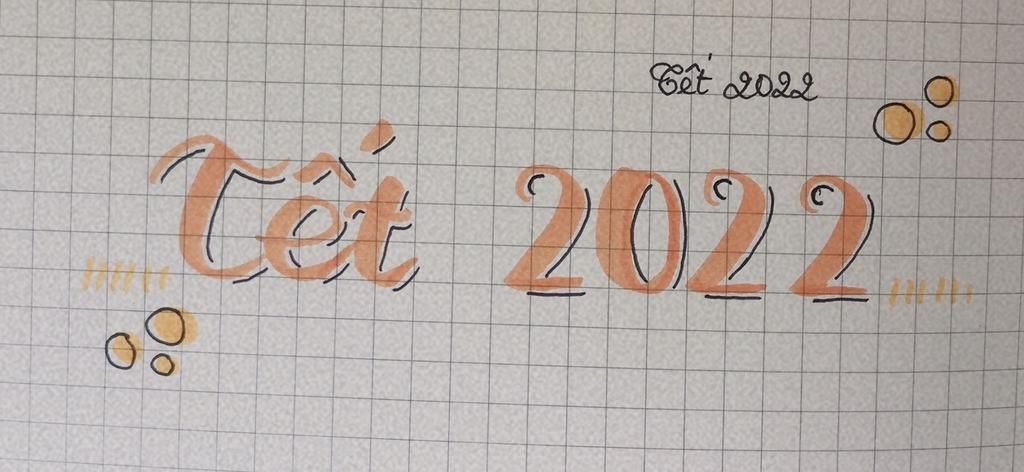 Tết 2022
Tết 2022